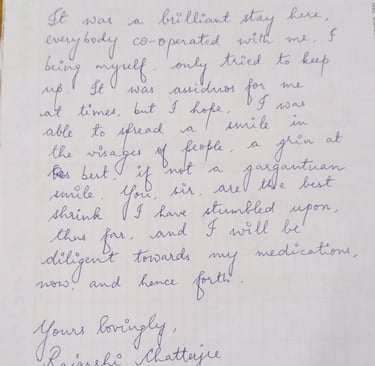 It was a brilliant stay here,
everybody co-operated with me. I
being myself, only tried to keep
up. It was assiduos for me
at times, but I hope, I was
able to spread a smile in
the visages of people, a grin at
best, if not a gargantuan
smile. You, sir, are the best
shrink I have stumbled upon,
thus far, and I will be
diligent towards my medications,
now, and hence forth.
Yours lovingly,
Rajarshi Chatterjee